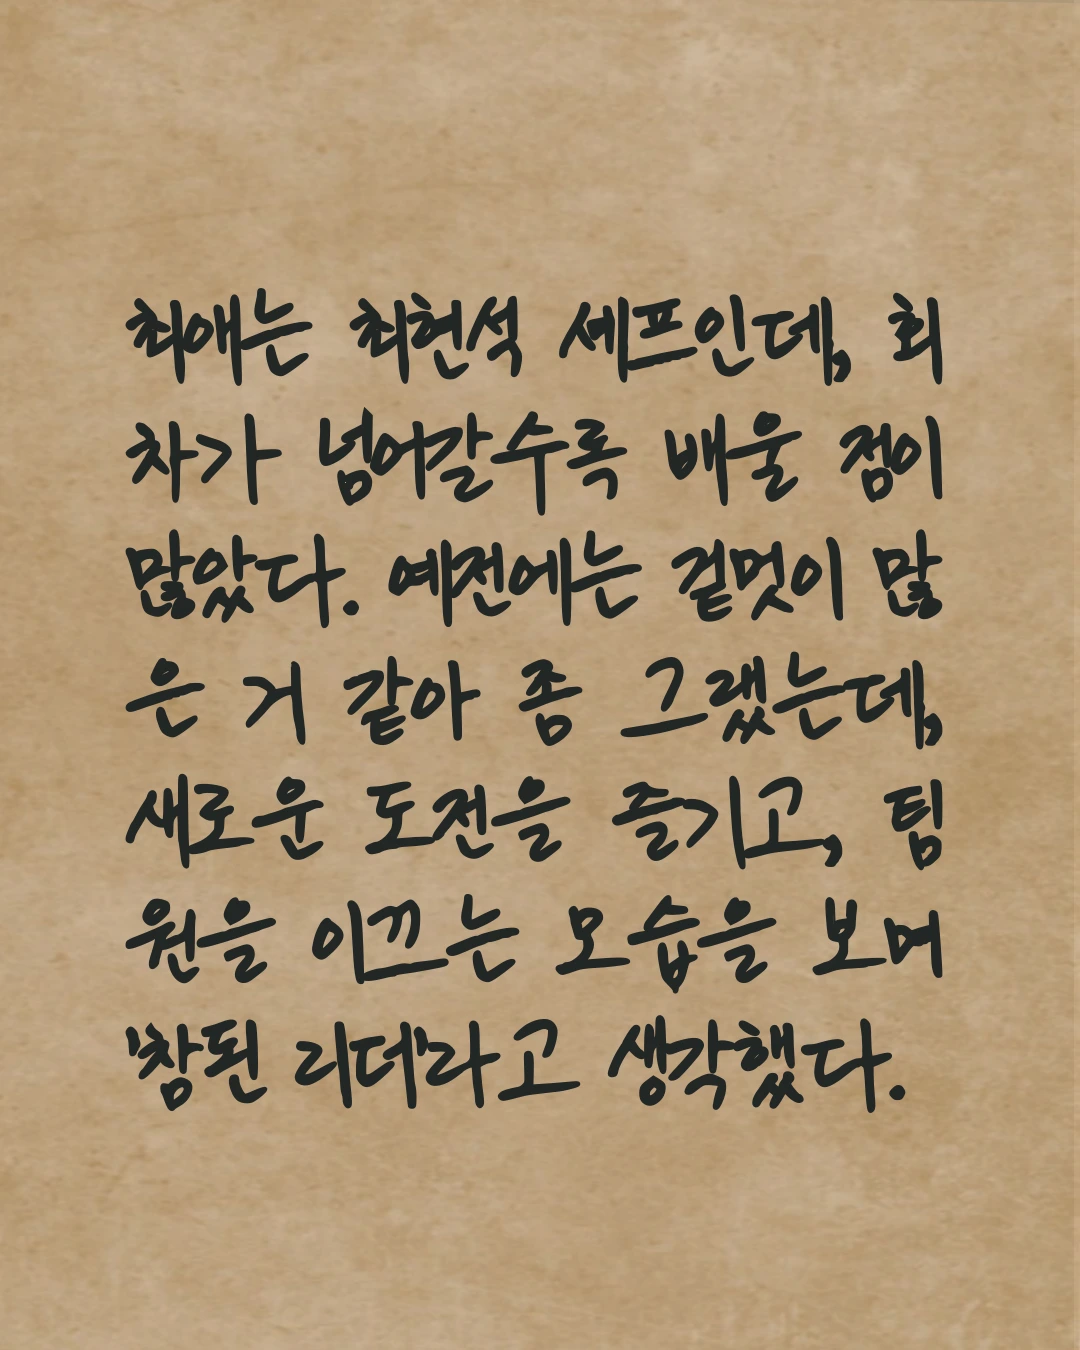 최애는 최현석 셰프인데, 회
차가 넘어갈수록 배울 점이
많았다. 예전에는 겉멋이 많
은 거 같아 좀 그랬는데,
새로운 도전을 즐기고, 팀
원을 이끄는 모습을 보며
'참된 리더'라고 생각했다.